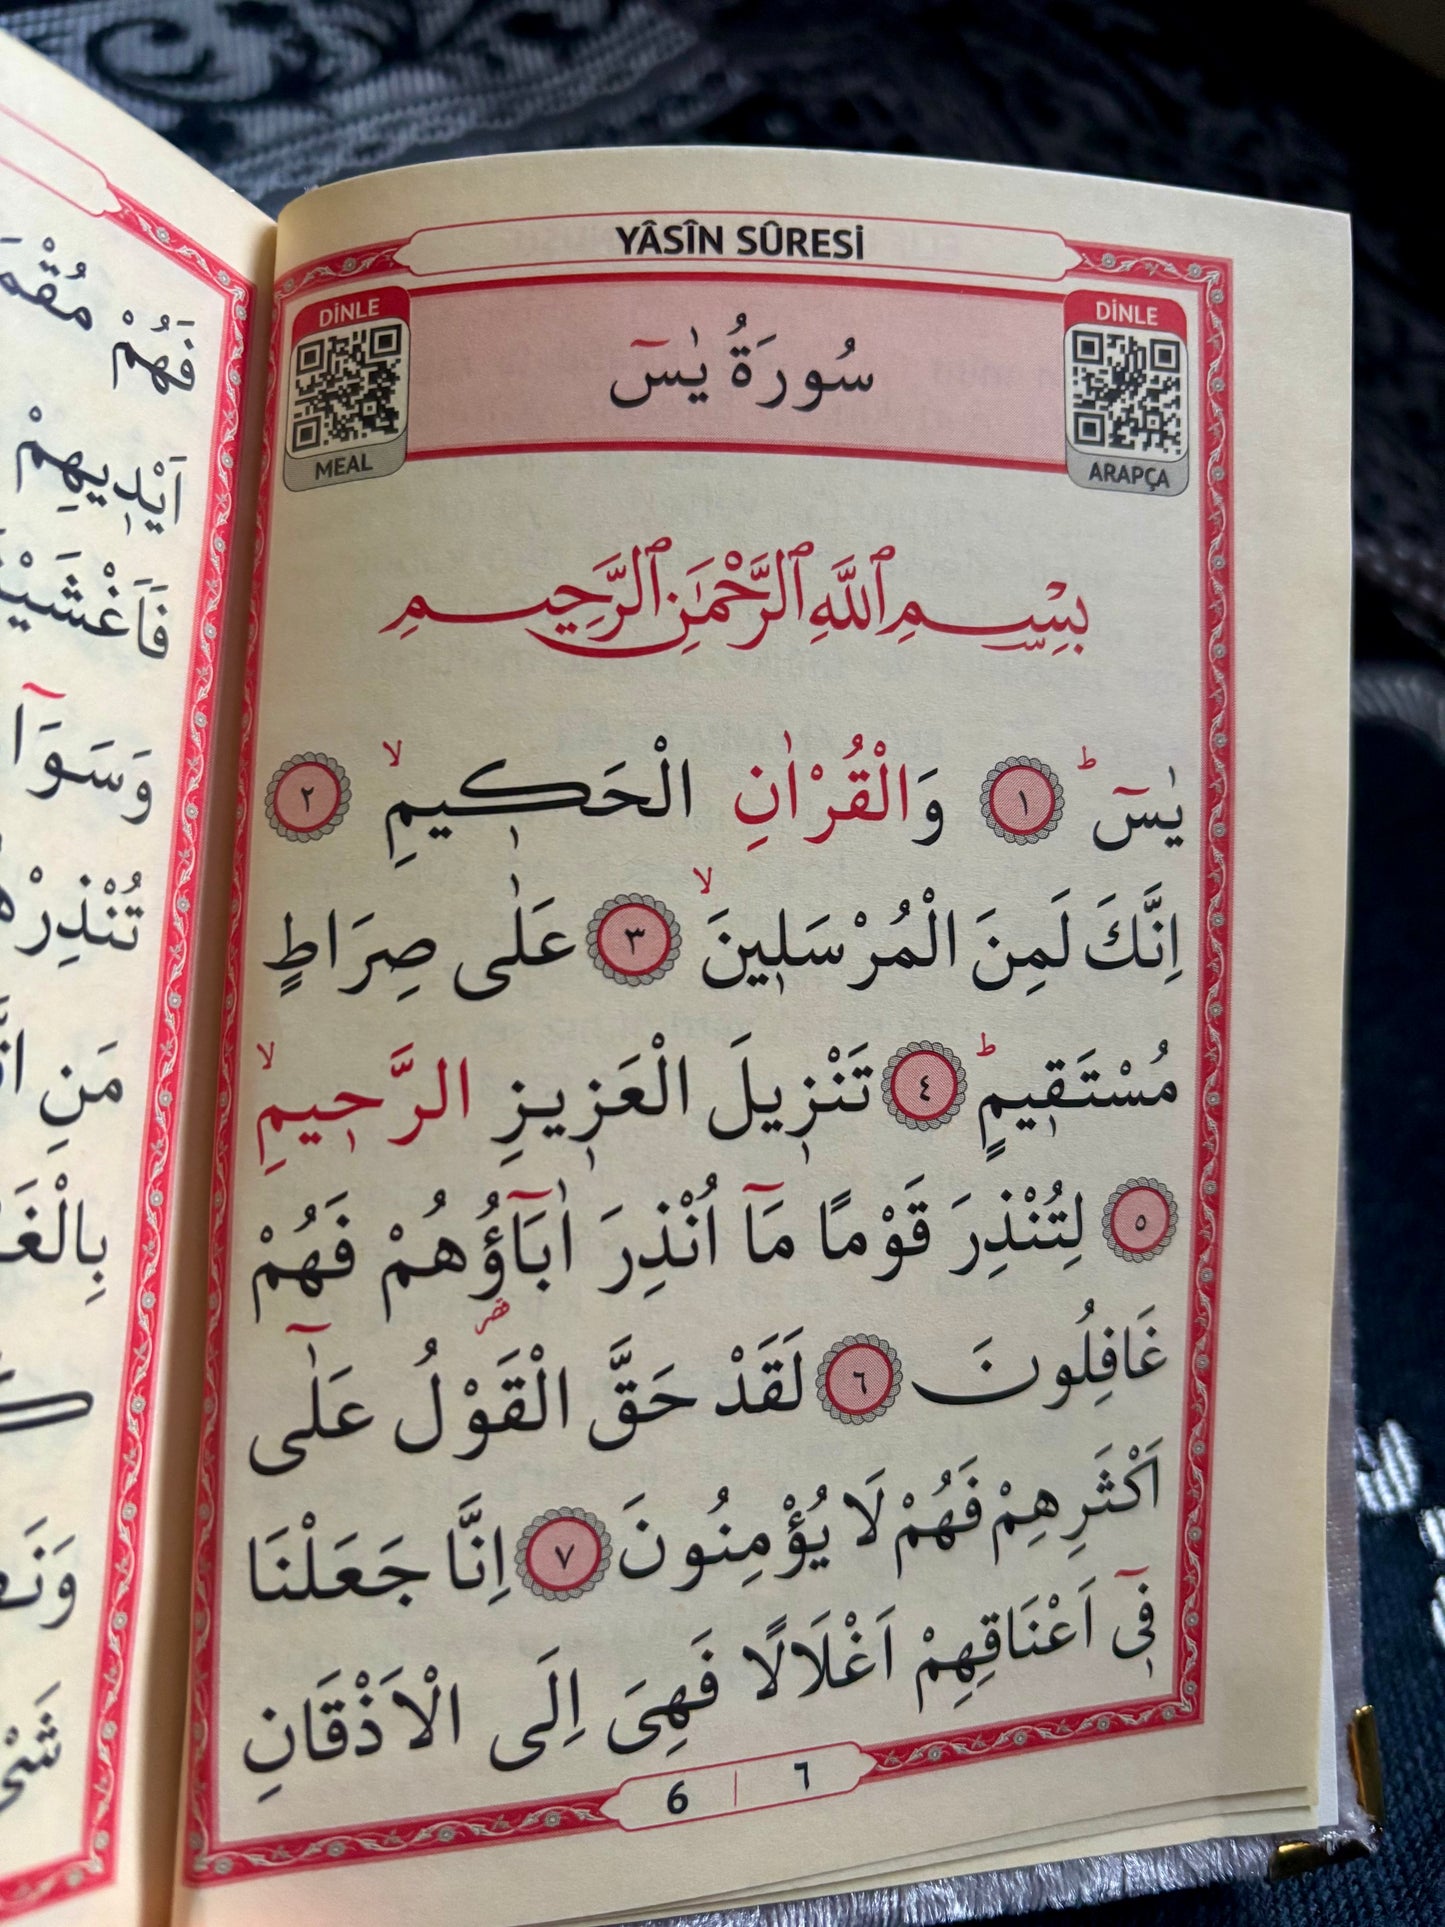 YÂSÎN SÛRESİ
DİNLE
سُورَةُ يٰسٓ
DİNLE
MEAL
ARAPÇA
بِسْمِ ٱللَّهِ ٱلرَّحْمَٰنِ ٱلرَّحِيمِ
يٰسٓ ۜ ١ وَالْقُرْاٰنِ الْحَكٖيمِ ۙ ٢
اِنَّكَ لَمِنَ الْمُرْسَلٖينَ ۙ ٣ عَلٰى صِرَاطٍ
مُسْتَقٖيمٍ ۜ ٤ تَنْزٖيلَ الْعَزٖيزِ الرَّحٖيمِ ۙ
٥ لِتُنْذِرَ قَوْمًا مَٓا اُنْذِرَ اٰبَٓاؤُهُمْ فَهُمْ
غَافِلُونَ ٦ لَقَدْ حَقَّ الْقَوْلُ عَلٰٓى
اَكْثَرِهِمْ فَهُمْ لَا يُؤْمِنُونَ ٧ اِنَّا جَعَلْنَا
فٖٓي اَعْنَاقِهِمْ اَغْلَالًا فَهِيَ اِلَى الْاَذْقَانِ
6 | ٦
فَهُمْ
اَيْدٖيهِمْ
تُنْذِرْ
مَنِ